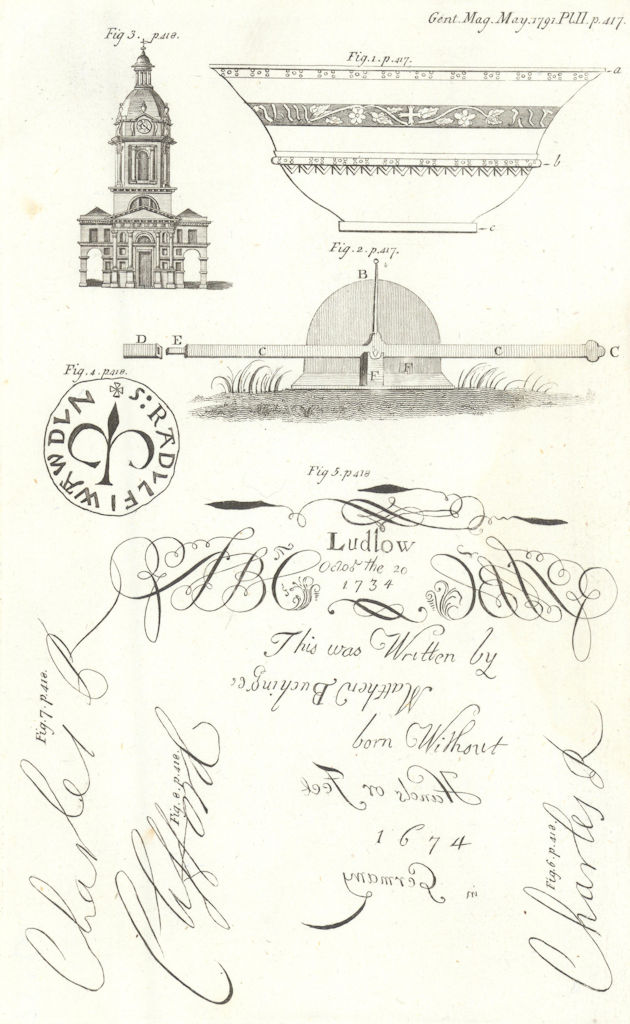 Gent. Mag. May. 1791. Pl.II. p. 417.
Fig. 3. p.418.
Fig. 1. p.417.
a
b
c
Fig. 2. p.417.
B
D E C C C
F F
Fig. 4. p.418.
S: RADVLFI WAWDVN
Fig 5. p.418
Ludlow
Octob the 20
1734
ABC
ABC
This was Written by
Matthew Buchinger
born Without
Hands or Feet
1674
in Germany
Fig. 7. p.418.
Charles R
Fig. 8. p.418.
Clifford
Fig. 6. p.418.
Charles R